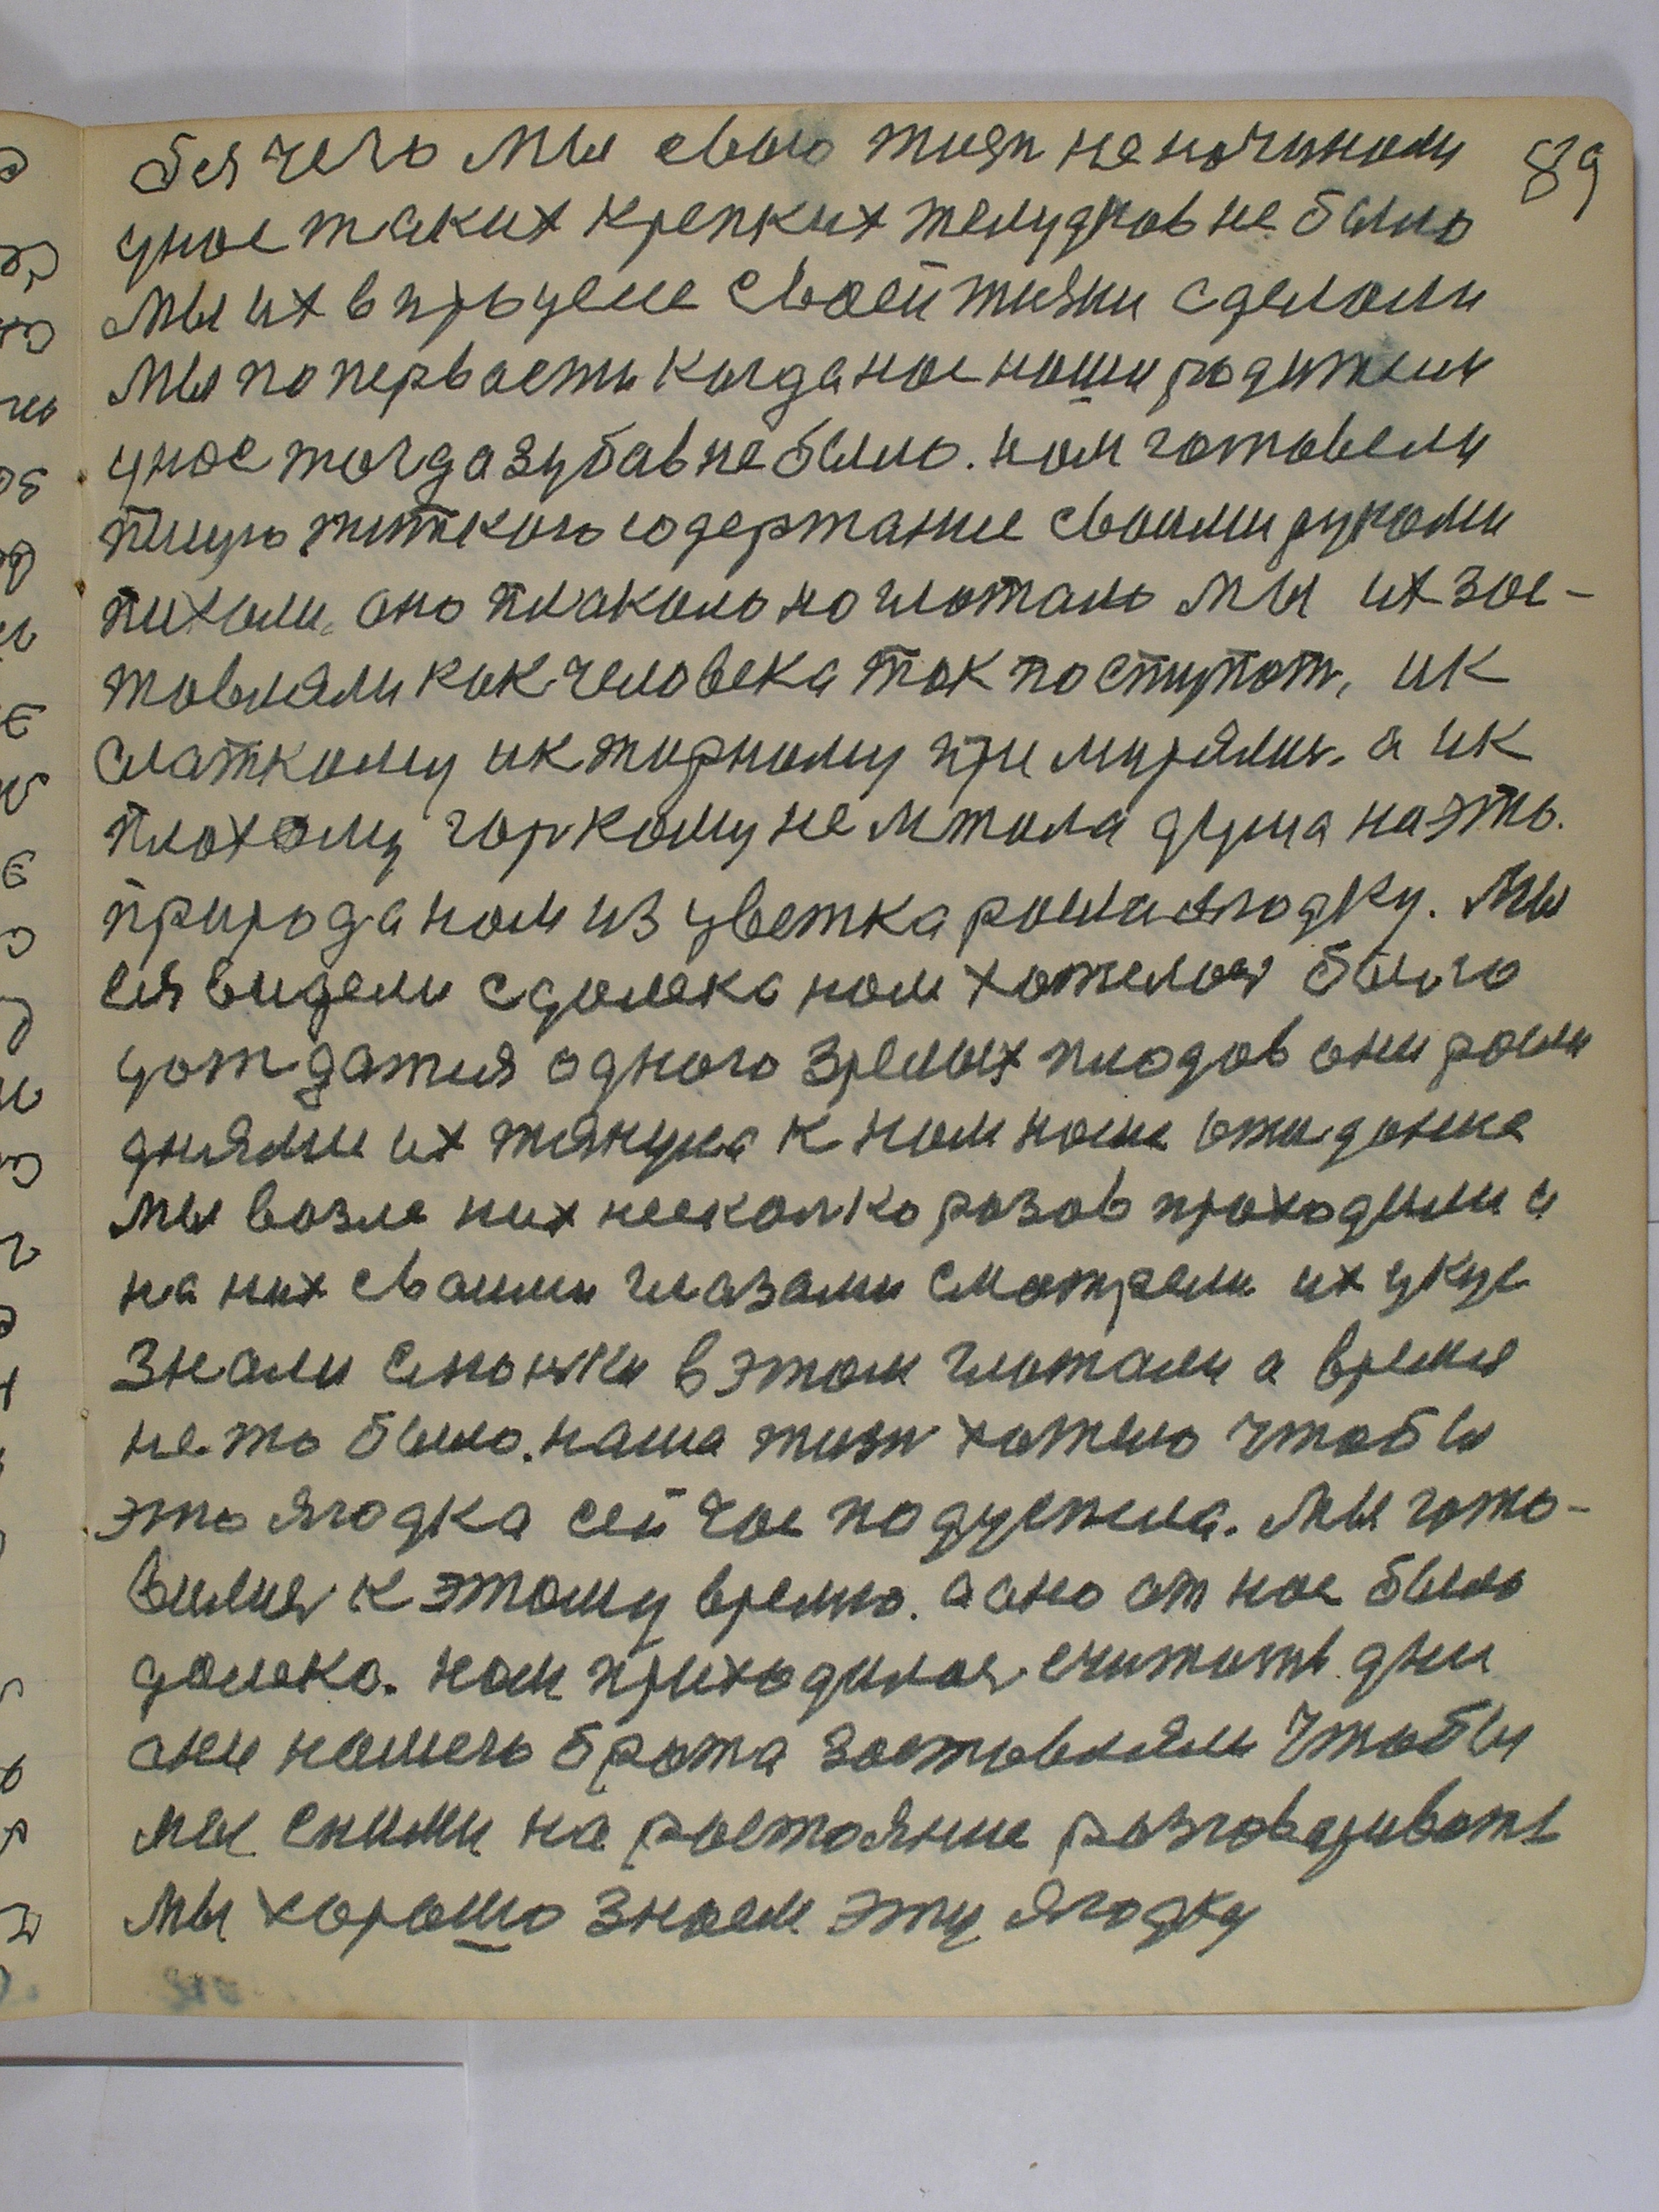 без чего мы свою жизн не начинали 89
унас таких крепких желудков не было
мы их в процесе своей жизни сделали
мы по первасти когда нас наши родители
унас тогда зубав не было. нам готовели
пищю житкого содержание своими руками
пихали. оно плакало но глотало мы их зас-
товляли как человека так поступат, ик
слаткому ик жирному примирялис. а ик
плохому горкому не лжала душа на эта.
природа нам из цветка рошла ягодку. Мы
ея видели сдалека нам хателося было
дождатся одного зрелых плодов они росли
днями их тянула к нам наше ожидание
мы возле них несколко разов проходили и
на них своими глазами смотрели их укус
знали слюнки в этом глотали а время
не то было. наша жизн хотело чтобы
это ягодка сейчас подуспела. мы гото-
вился к этому время. а оно от нас было
далеко. нам приходилося считать дни
они нашего брата заставляли чтобы
мы сними на растояние разговаривать
мы хорошо знаем эту ягодку